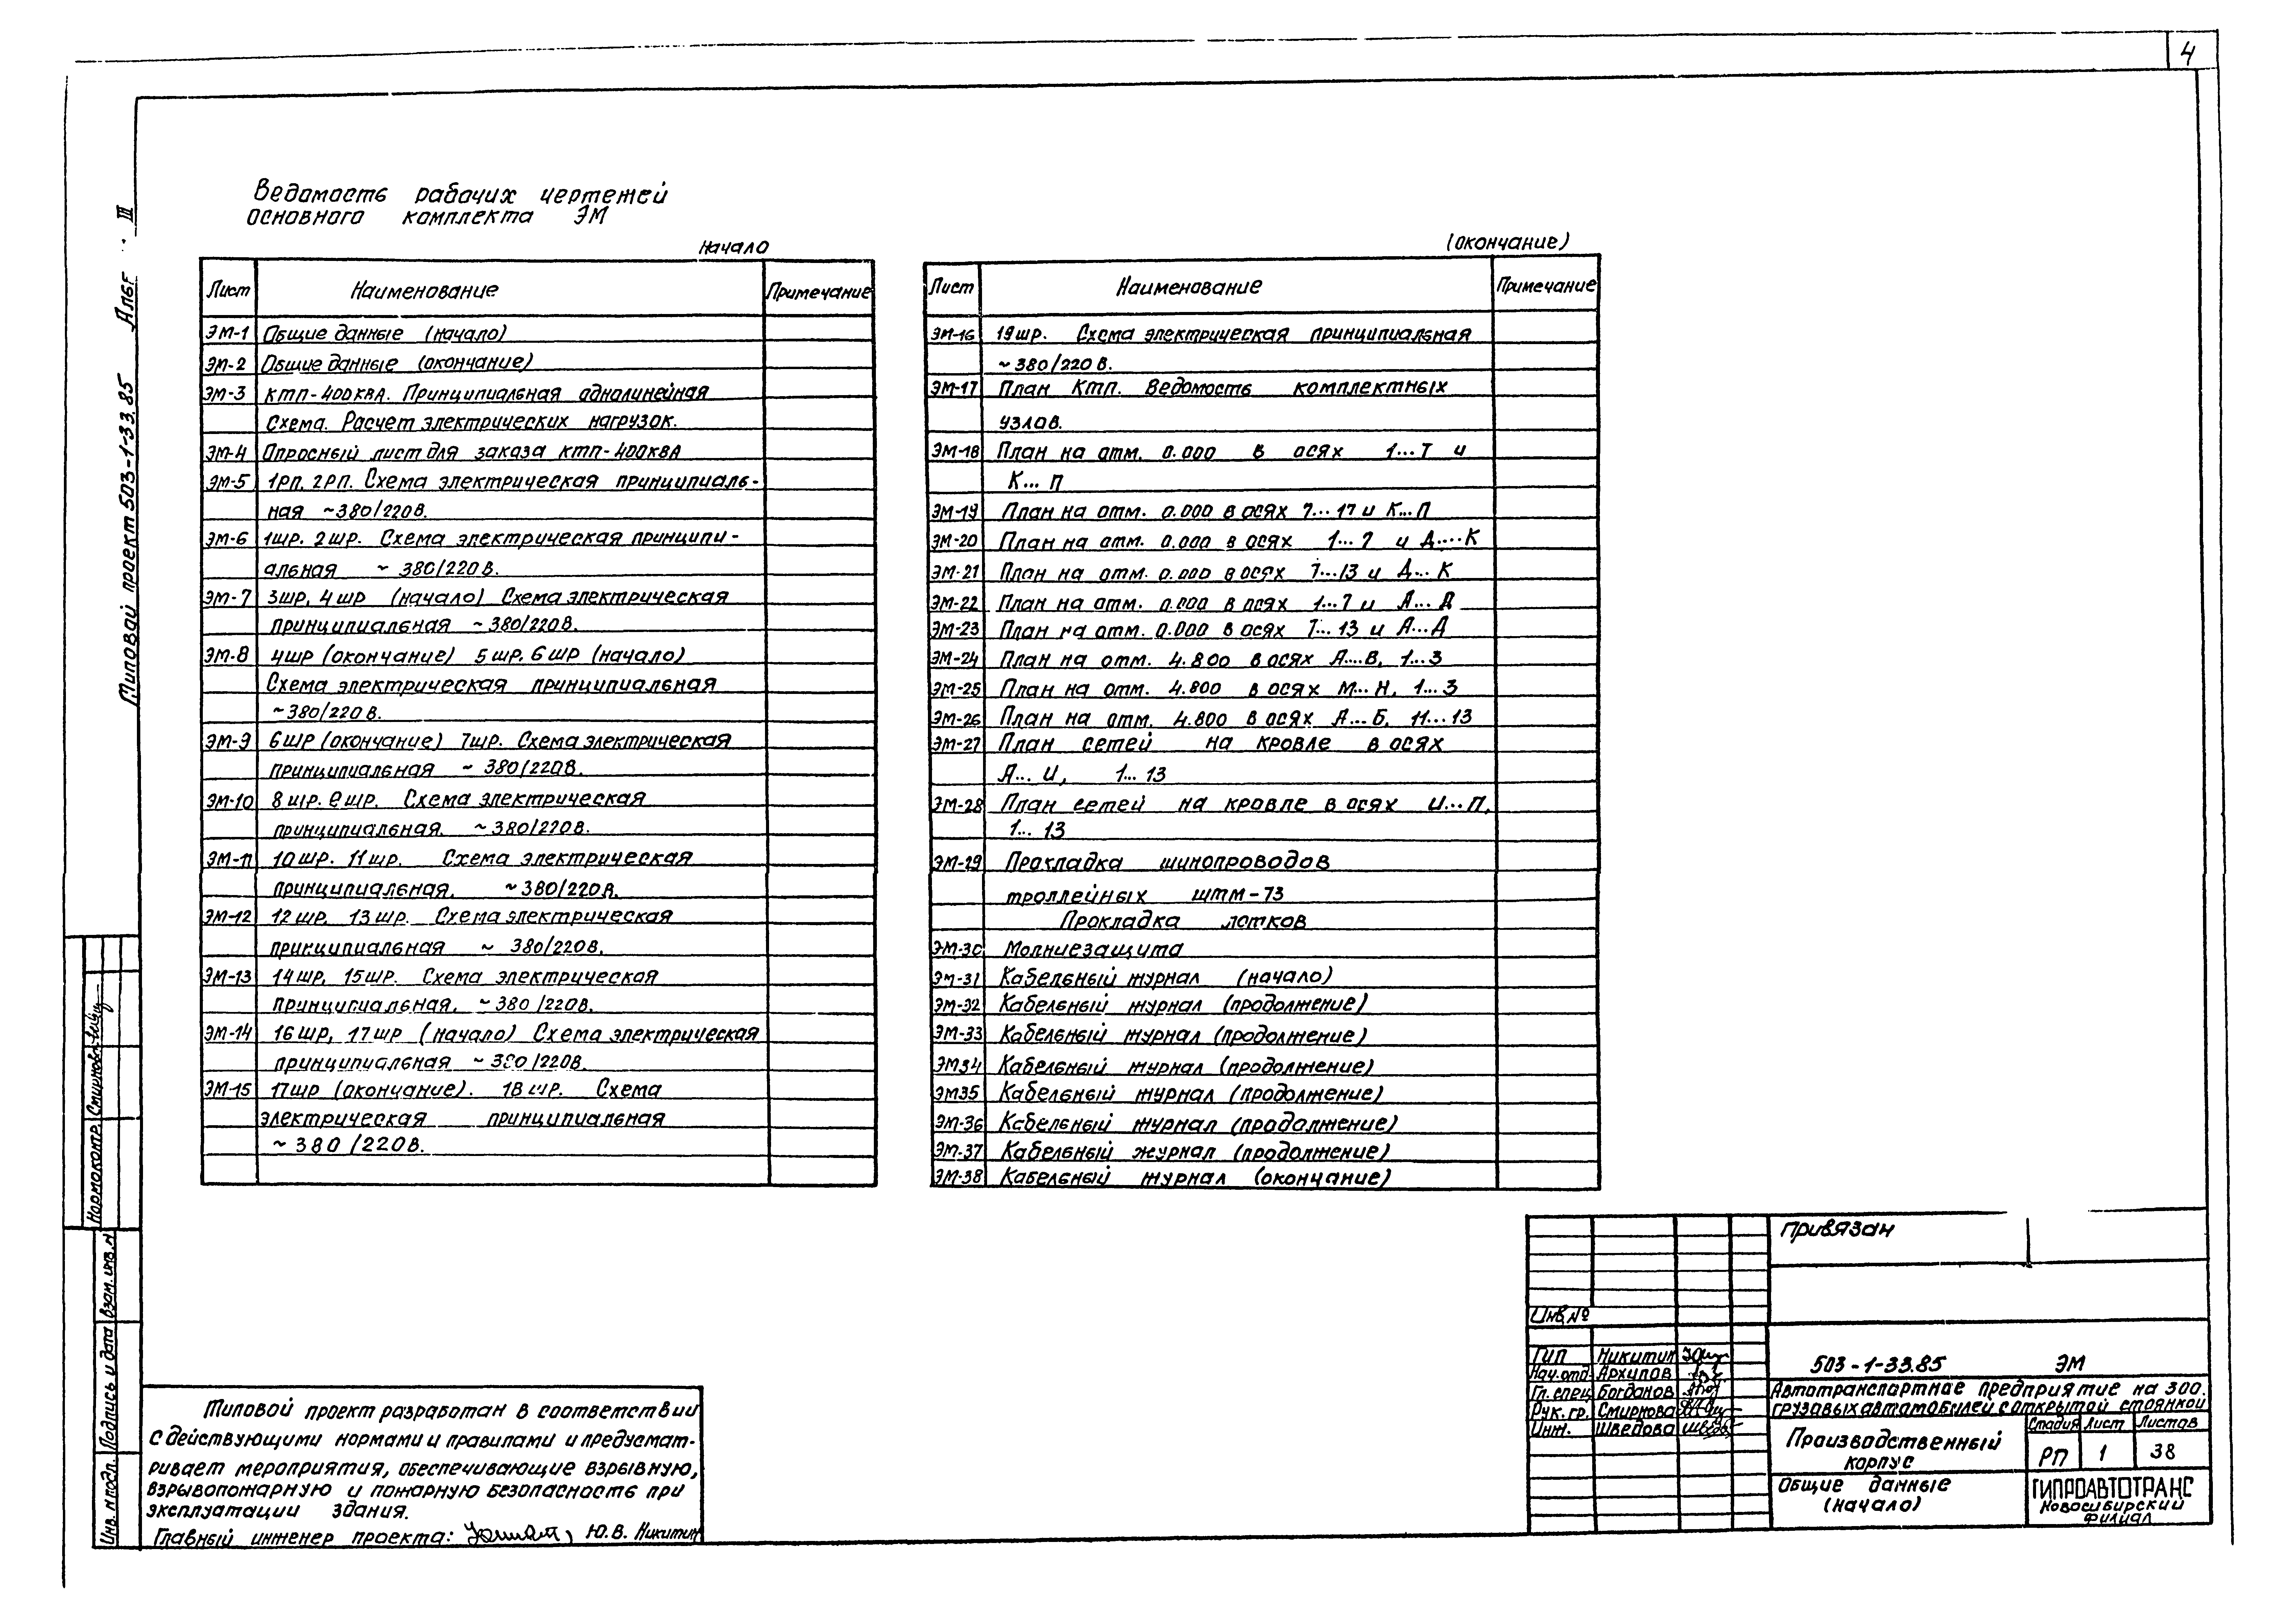 4
Типовой проект 503-1-33.85 III
Ведомость рабочих чертежей
основного комплекта ЭМ
Начало
Лист Наименование Примечание
ЭМ-1 Общие данные (начало)
ЭМ-2 Общие данные (окончание)
ЭМ-3 КТП-400кВА. Принципиальная однолинейная
схема. Расчет электрических нагрузок.
ЭМ-4 Опросный лист для заказа КТП-400кВА
ЭМ-5 1РП, 2РП. Схема электрическая принципиаль-
ная ~380/220В.
ЭМ-6 1шр. 2шр. Схема электрическая принципи-
альная ~ 380/220В.
ЭМ-7 3шр, 4шр (начало) Схема электрическая
принципиальная ~380/220В.
ЭМ-8 4шр (окончание) 5шр. 6шр (начало)
Схема электрическая принципиальная
~380/220В.
ЭМ-9 6шр (окончание) 7шр. Схема электрическая
принципиальная ~ 380/220В.
ЭМ-10 8шр. 9шр. Схема электрическая
принципиальная. ~380/220В.
ЭМ-11 10шр. 11шр. Схема электрическая
принципиальная. ~380/220В.
ЭМ-12 12шр. 13шр. Схема электрическая
принципиальная ~ 380/220В.
ЭМ-13 14шр, 15шр. Схема электрическая
принципиальная. ~380/220В.
ЭМ-14 16шр, 17шр (начало) Схема электрическая
принципиальная ~380/220В.
ЭМ-15 17шр (окончание). 18шр. Схема
электрическая принципиальная
~380/220В.
(окончание)
Лист Наименование Примечание
ЭМ-16 19шр. Схема электрическая принципиальная
~380/220В.
ЭМ-17 План КТП. Ведомость комплектных
узлов.
ЭМ-18 План на отм. 0.000 в осях 1...7 и
К...П
ЭМ-19 План на отм. 0.000 в осях 7...17 и К...П
ЭМ-20 План на отм. 0.000 в осях 1...7 и Д....К
ЭМ-21 План на отм. 0.000 в осях 7...13 и Д...К
ЭМ-22 План на отм. 0.000 в осях 1...7 и А...Д
ЭМ-23 План на отм. 0.000 в осях 7...13 и А...Д
ЭМ-24 План на отм. 4.800 в осях А....В, 1...3
ЭМ-25 План на отм. 4.800 в осях М...Н, 1...3
ЭМ-26 План на отм. 4.800 в осях А...Б, 11...13
ЭМ-27 План сетей на кровле в осях
А...И, 1...13
ЭМ-28 План сетей на кровле в осях И...П,
1...13
ЭМ-29 Прокладка шинопроводов
троллейных ШТМ-73
Прокладка лотков
ЭМ-30 Молниезащита
ЭМ-31 Кабельный журнал (начало)
ЭМ-32 Кабельный журнал (продолжение)
ЭМ-33 Кабельный журнал (продолжение)
ЭМ34 Кабельный журнал (продолжение)
ЭМ35 Кабельный журнал (продолжение)
ЭМ-36 Кабельный журнал (продолжение)
ЭМ-37 Кабельный журнал (продолжение)
ЭМ-38 Кабельный журнал (окончание)
Нормоконтр. Смирнова
Взам. инв. №
Подпись и дата
Инв. № подл.
Типовой проект разработан в соответствии
с действующими нормами и правилами и предусмат-
ривает мероприятия, обеспечивающие взрывную,
взрывопожарную и пожарную безопасность при
эксплуатации здания.
Главный инженер проекта: Ю.В. Никитин
Привязан
Инв. №
ГИП Никитин
Нач.отд. Архипов
Гл. спец. Богданов
Рук. гр. Смирнова
Инж. Шведова
503-1-33.85 ЭМ
Автотранспортное предприятие на 300
грузовых автомобилей с открытой стоянкой
Производственный
корпус
Стадия Лист Листов
РП 1 38
Общие данные
(начало)
ГИПРОАВТОТРАНС
Новосибирский
филиал